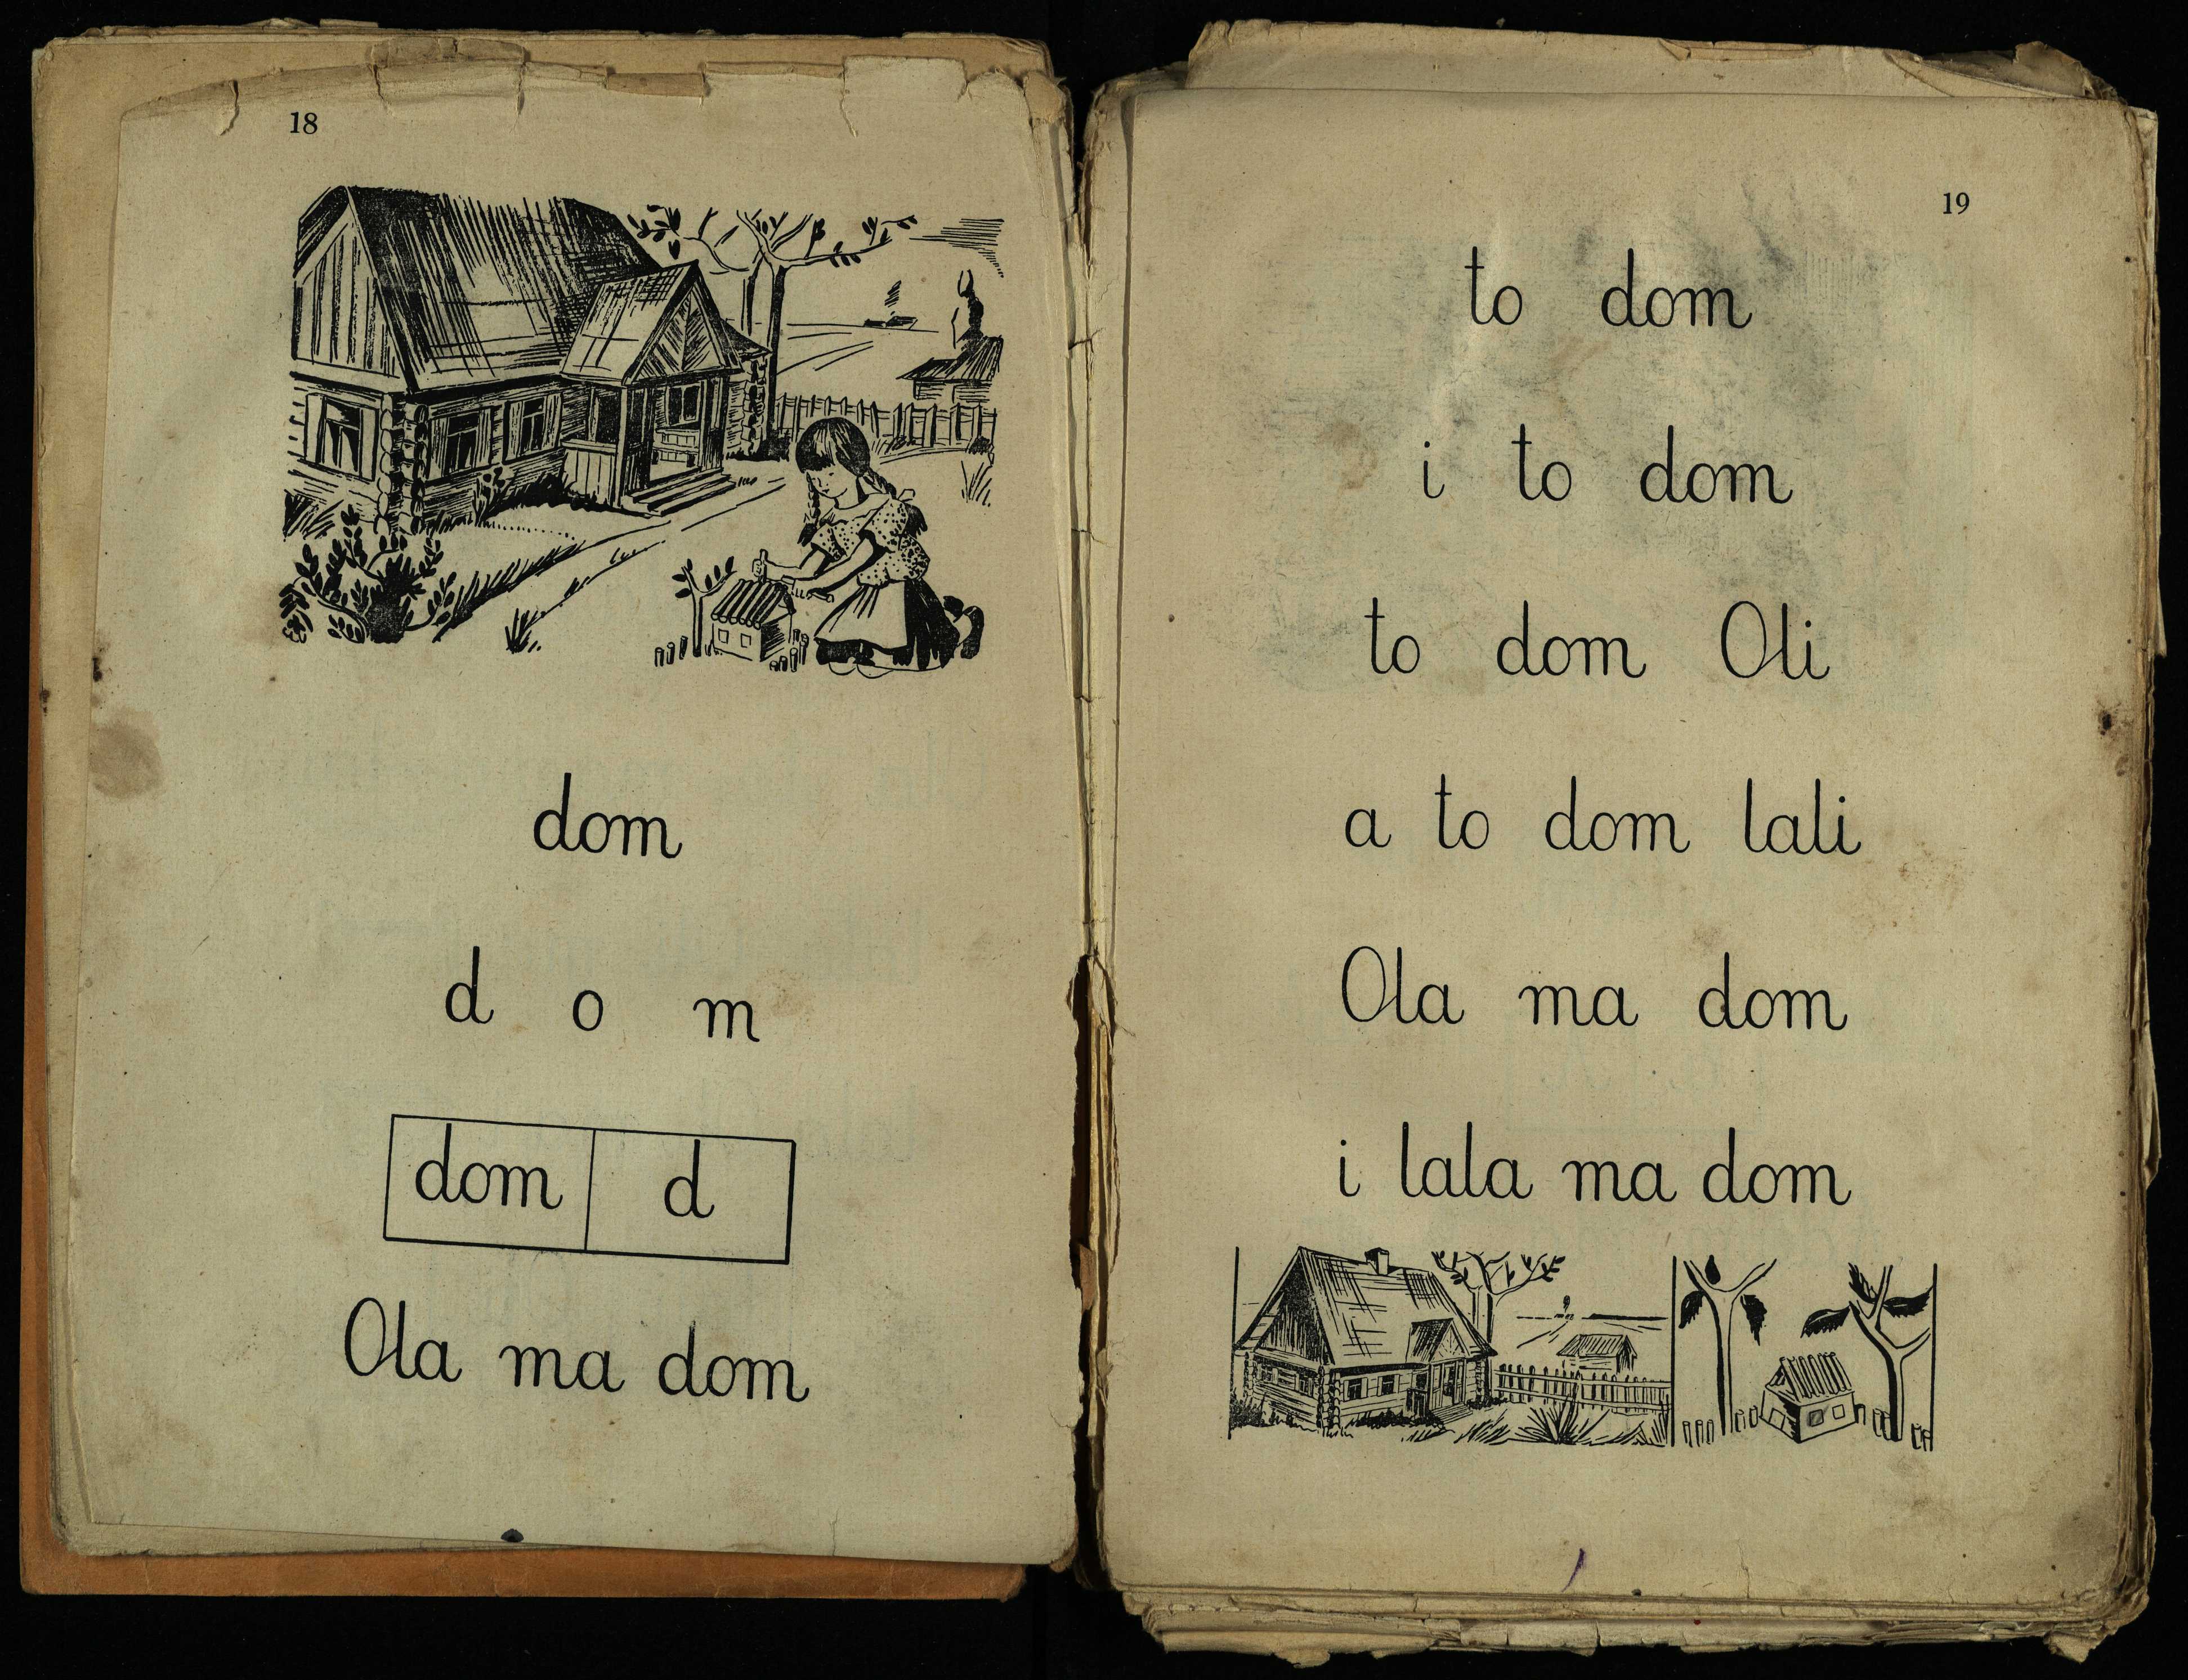 18
dom
d o m
dom d
Ola ma dom
19
to dom
i to dom
to dom Oli
a to dom lali
Ola ma dom
i lala ma dom